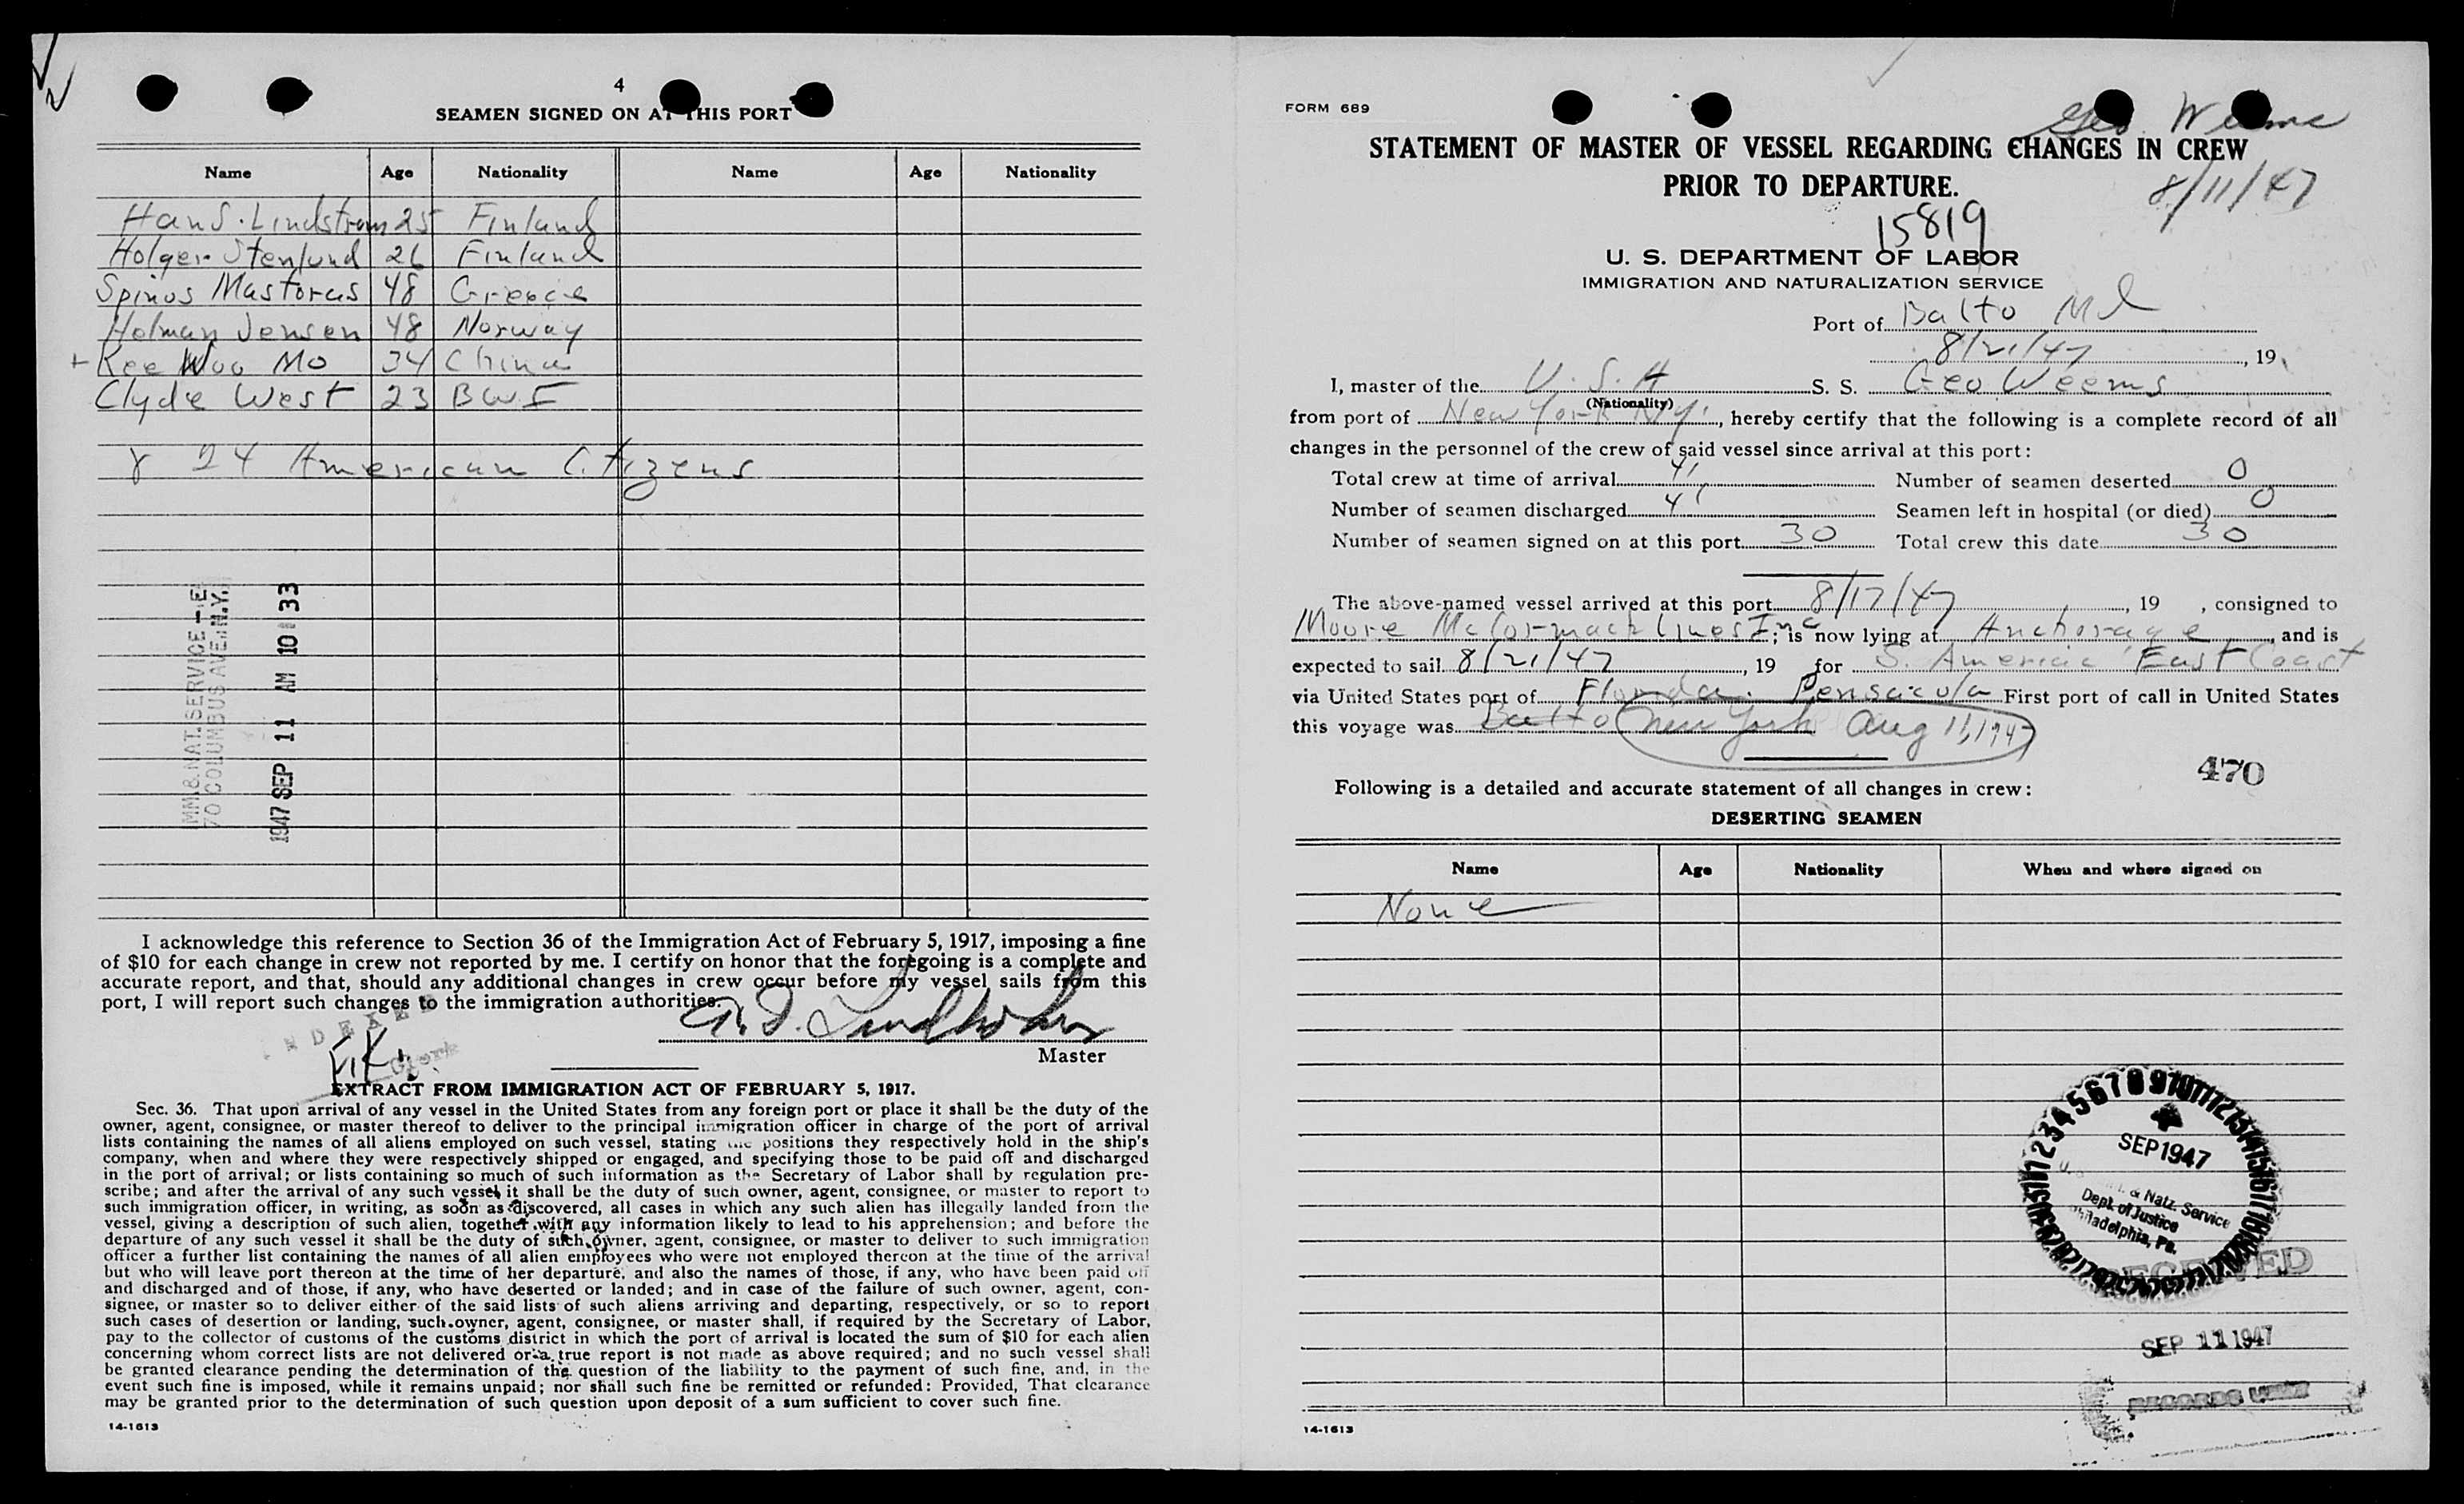 4
SEAMEN SIGNED ON AT THIS PORT
Name Age Nationality Name Age Nationality
Hans. Lindstrom 25 Finland
Holger Stenlund 26 Finland
Spiros Mastoras 48 Greece
Holman Jensen 48 Norway
+ Kee Woo Mo 34 China
Clyde West 23 BWI
& 24 American Citizens
IMM. & NAT. SERVICE
70 COLUMBUS AVE. N.Y.
1947 SEP 11 AM 10 33
I acknowledge this reference to Section 36 of the Immigration Act of February 5, 1917, imposing a fine
of $10 for each change in crew not reported by me. I certify on honor that the foregoing is a complete and
accurate report, and that, should any additional changes in crew occur before my vessel sails from this
port, I will report such changes to the immigration authorities.
INDEXED
Clerk
Master
EXTRACT FROM IMMIGRATION ACT OF FEBRUARY 5, 1917.
Sec. 36. That upon arrival of any vessel in the United States from any foreign port or place it shall be the duty of the
owner, agent, consignee, or master thereof to deliver to the principal immigration officer in charge of the port of arrival
lists containing the names of all aliens employed on such vessel, stating the positions they respectively hold in the ship's
company, when and where they were respectively shipped or engaged, and specifying those to be paid off and discharged
in the port of arrival; or lists containing so much of such information as the Secretary of Labor shall by regulation pre-
scribe; and after the arrival of any such vessel it shall be the duty of such owner, agent, consignee, or master to report to
such immigration officer, in writing, as soon as discovered, all cases in which any such alien has illegally landed from the
vessel, giving a description of such alien, together with any information likely to lead to his apprehension; and before the
departure of any such vessel it shall be the duty of such owner, agent, consignee, or master to deliver to such immigration
officer a further list containing the names of all alien employees who were not employed thereon at the time of the arrival
but who will leave port thereon at the time of her departure, and also the names of those, if any, who have been paid off
and discharged and of those, if any, who have deserted or landed; and in case of the failure of such owner, agent, con-
signee, or master so to deliver either of the said lists of such aliens arriving and departing, respectively, or so to report
such cases of desertion or landing, such owner, agent, consignee, or master shall, if required by the Secretary of Labor,
pay to the collector of customs of the customs district in which the port of arrival is located the sum of $10 for each alien
concerning whom correct lists are not delivered or a true report is not made as above required; and no such vessel shall
be granted clearance pending the determination of the question of the liability to the payment of such fine, and, in the
event such fine is imposed, while it remains unpaid; nor shall such fine be remitted or refunded: Provided, That clearance
may be granted prior to the determination of such question upon deposit of a sum sufficient to cover such fine.
14-1613
FORM 689
Geo Weems
STATEMENT OF MASTER OF VESSEL REGARDING CHANGES IN CREW
PRIOR TO DEPARTURE.
8/11/47
15819
U. S. DEPARTMENT OF LABOR
IMMIGRATION AND NATURALIZATION SERVICE
Port of Balto Md
8/21/47, 19
I, master of the U.S.A S. S. Geo Weems
(Nationality)
from port of New York N.Y., hereby certify that the following is a complete record of all
changes in the personnel of the crew of said vessel since arrival at this port:
Total crew at time of arrival 41 Number of seamen deserted 0
Number of seamen discharged 41 Seamen left in hospital (or died) 0
Number of seamen signed on at this port 30 Total crew this date 30
The above-named vessel arrived at this port 8/17/47, 19 , consigned to
Moore McCormack Lines Inc; is now lying at Anchorage, and is
expected to sail 8/21/47, 19 for S. America East Coast
via United States port of Florida. Pensacola First port of call in United States
this voyage was Balto New York Aug 11, 1947
470
Following is a detailed and accurate statement of all changes in crew:
DESERTING SEAMEN
Name Age Nationality When and where signed on
None
SEP 1947
& Natz. Service
Dept. of Justice
Philadelphia, Pa.
RECEIVED
SEP 11 1947
RECORDS UNIT
14-1613